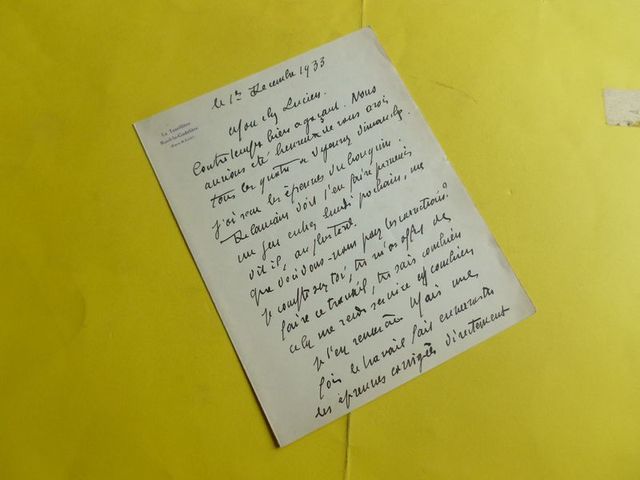 La Tourillère
Rueil-la-Gadelière
(Eure & Loir)
le 1er Decembre 1933
Mon cher Lucien.
Contretemps bien agaçant. Nous
aurions été heureux de vous avoir
tous les quatre à dejeuner dimanche.
J'ai reçu les épreuves du bouquin.
Delamain doit l'en faire parvenir
un jeu entier lundi prochain, me
dit-il, au plus tard.
Que decidons-nous pour les corrections?
Je compte sur toi, tu m'as offert de
faire ce travail, tu sais combien
cela me rend service et combien
je t'en remercie. Mais une
fois le travail fait
les épreuves corrigées directement